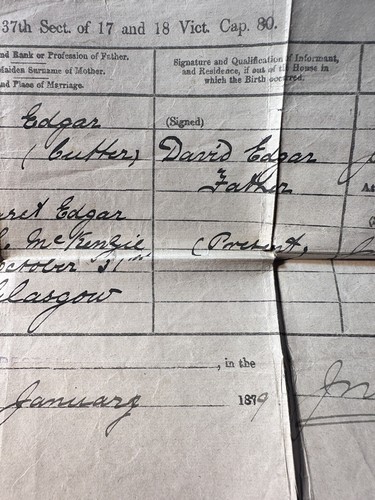 37th Sect. of 17 and 18 Vict. Cap. 80.
nd Rank or Profession of Father.
Maiden Surname of Mother.
nd Place of Marriage.
Signature and Qualification of Informant,
and Residence, if out of the House in
which the Birth occurred.
Edgar
(Cutter)
ret Edgar
McKenzie
October 31st
Glasgow
(Signed)
David Edgar
Father
(Present)
, in the
January 1879